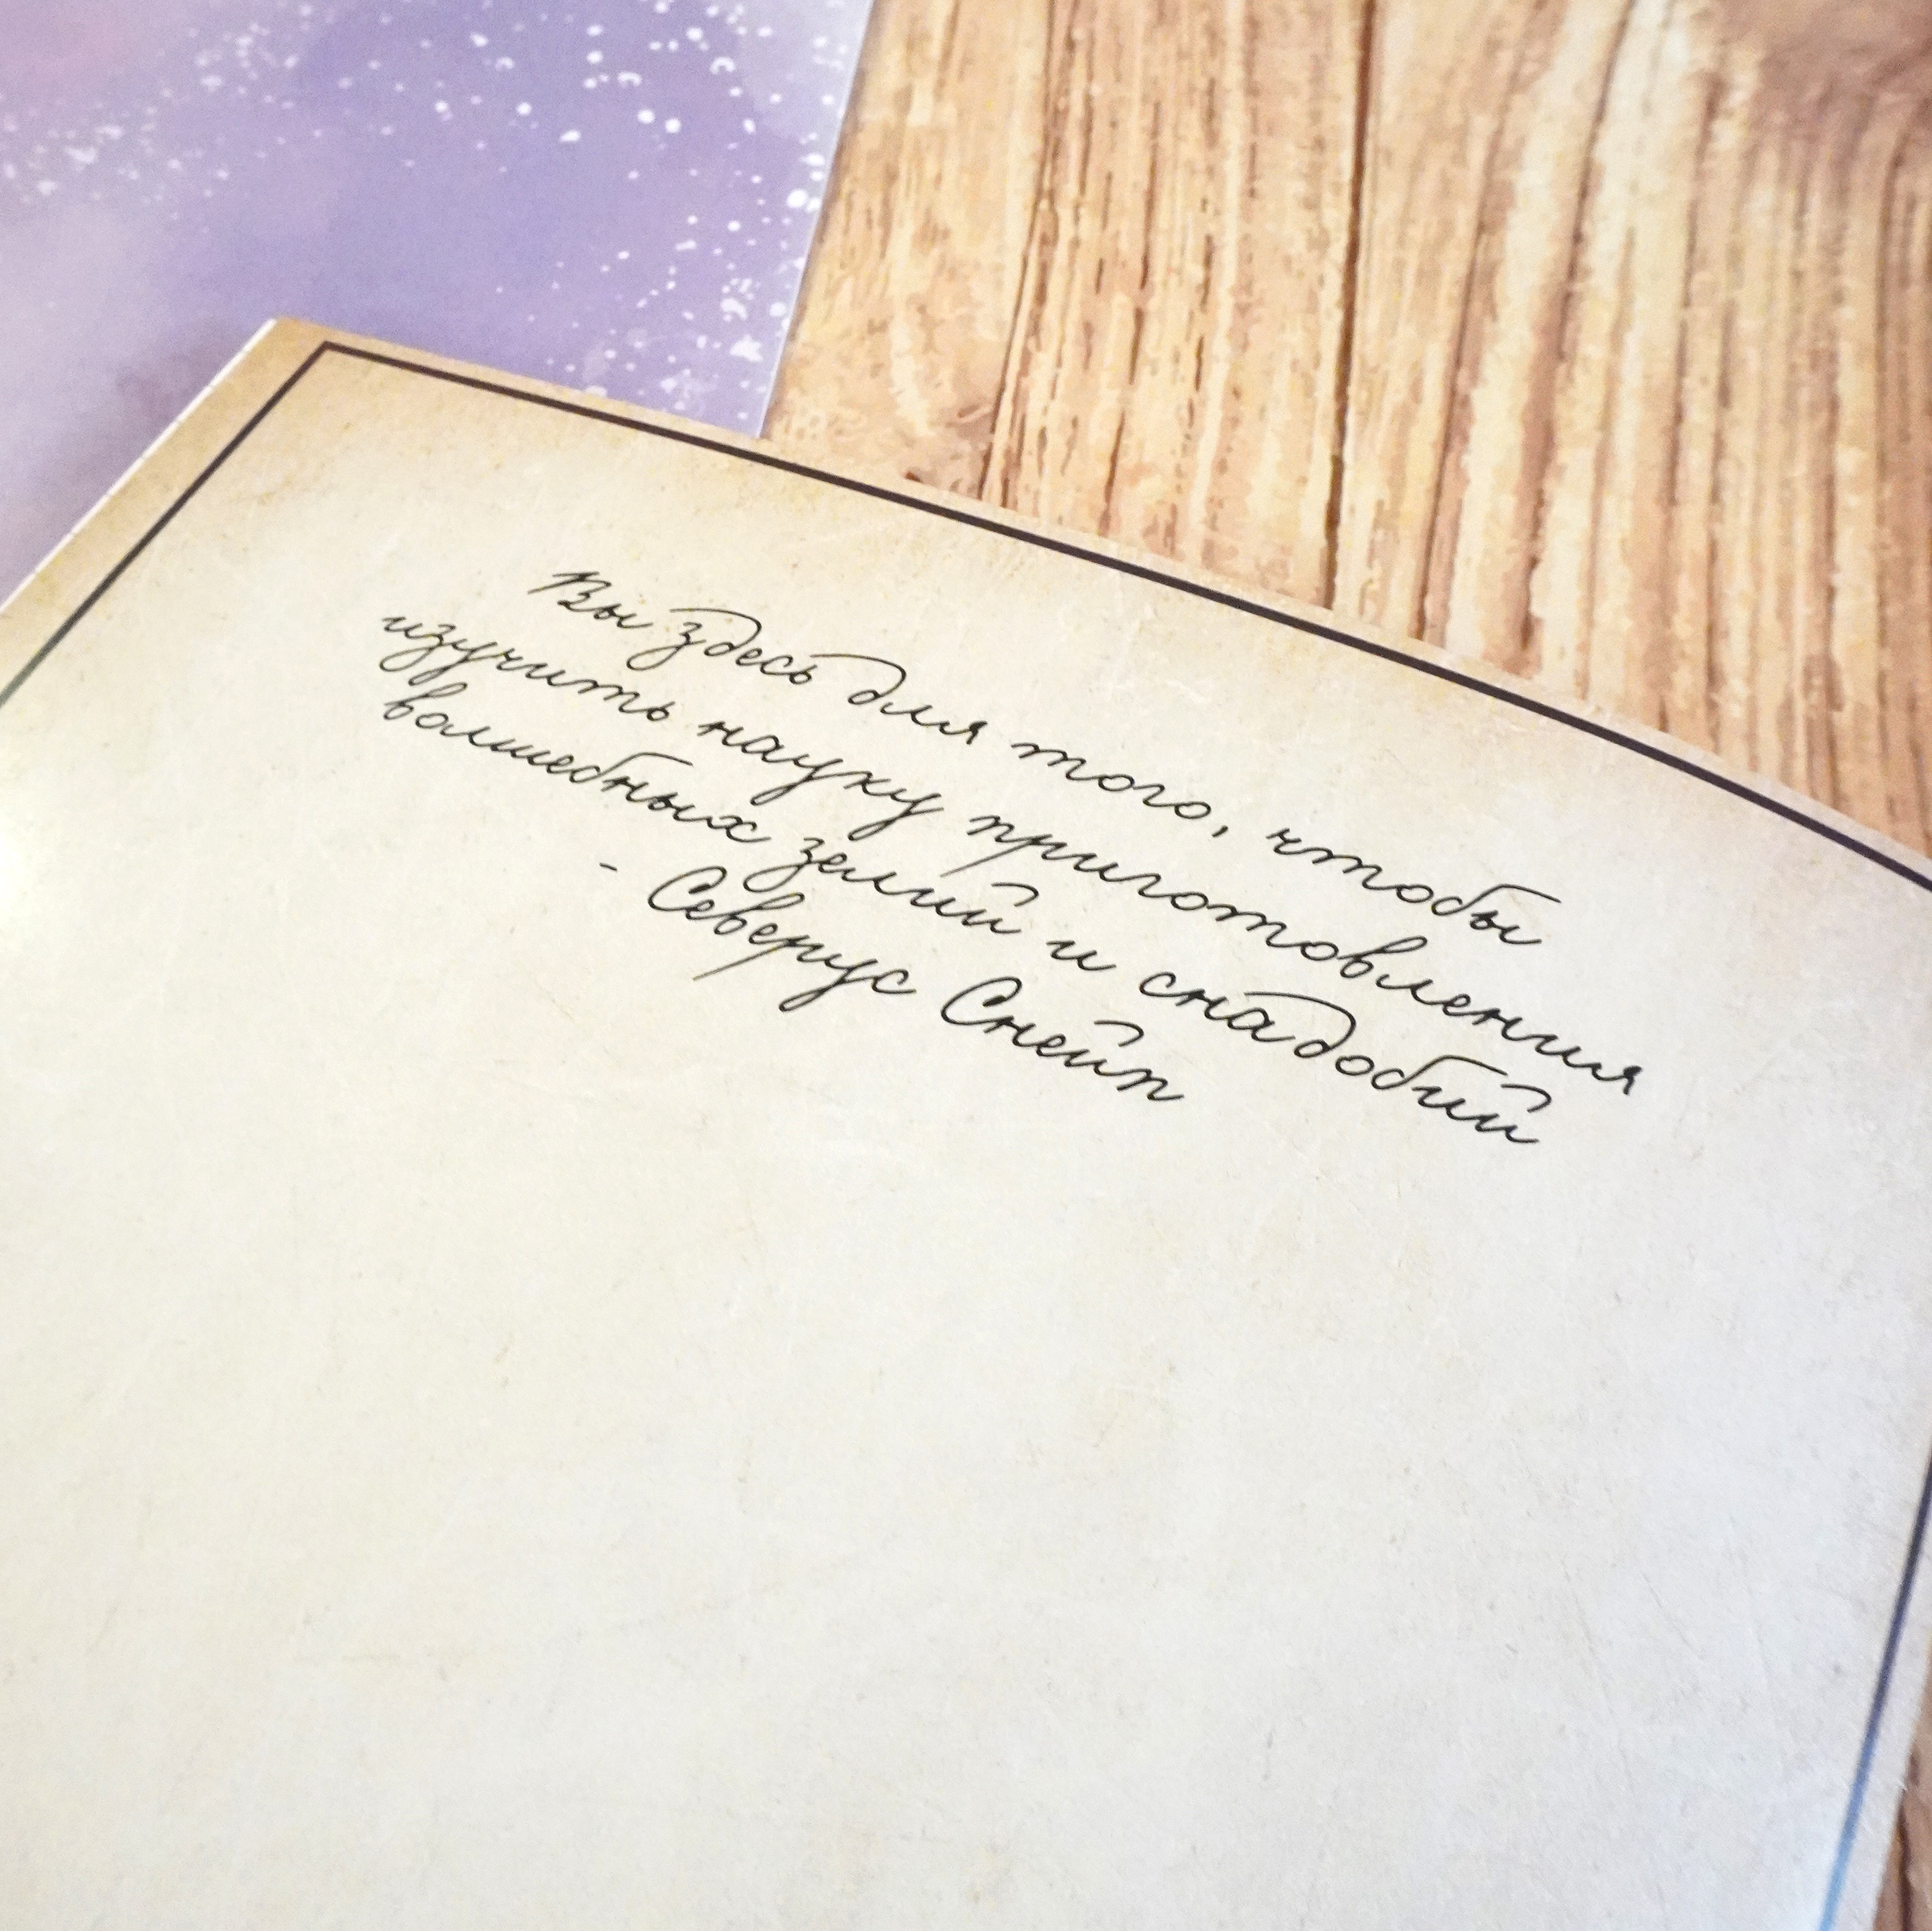 Вы здесь для того, чтобы
изучить науку приготовления
волшебных зелий и снадобий
- Северус Снейп